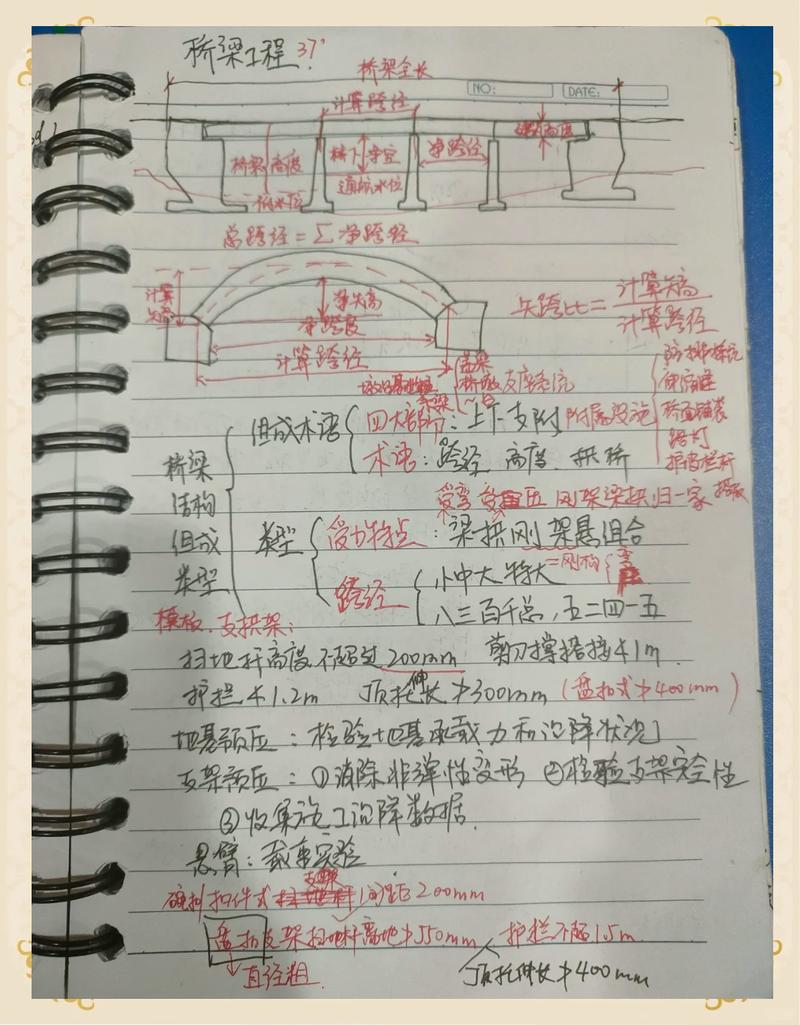 桥梁工程 37'
NO: DATE:
桥梁全长
计算跨径
桥梁高度 桥下净空 净跨径 建筑高度
低水位 通航水位
总跨径=Σ净跨径
计算矢高
净矢高
净跨度
计算跨径
矢跨比=计算矢高/计算跨径
盖梁
桥墩 支座系统
防排水系统
桥面铺装
路灯
护栏栏杆
组成术语 四大部门:上下支附 附属设施
术语:跨径 高度 拱桥
桥梁
结构
组成
类型
受弯 受压 刚架梁拱归一家
类型 受力特点:梁拱刚架悬组合
=刚构
跨径 小中大特大
八三百千总,五二四一五
模板、支拱架:
扫地杆高度不超过200mm 剪刀撑搭接≮1m.
护栏≮1.2m 顶托伸长≯300mm (盘扣式≯400mm)
地基预压:检验地基承载力和沉降状况
支架预压:①消除非弹性变形 ②检验支架安全性
③收集施工沉降数据.
悬臂:载重实验
碗扣扣件式支架 间距200mm
盘扣支架扫地杆离地≯550mm 护栏不超1.5m
直径粗 顶托伸长≯400mm